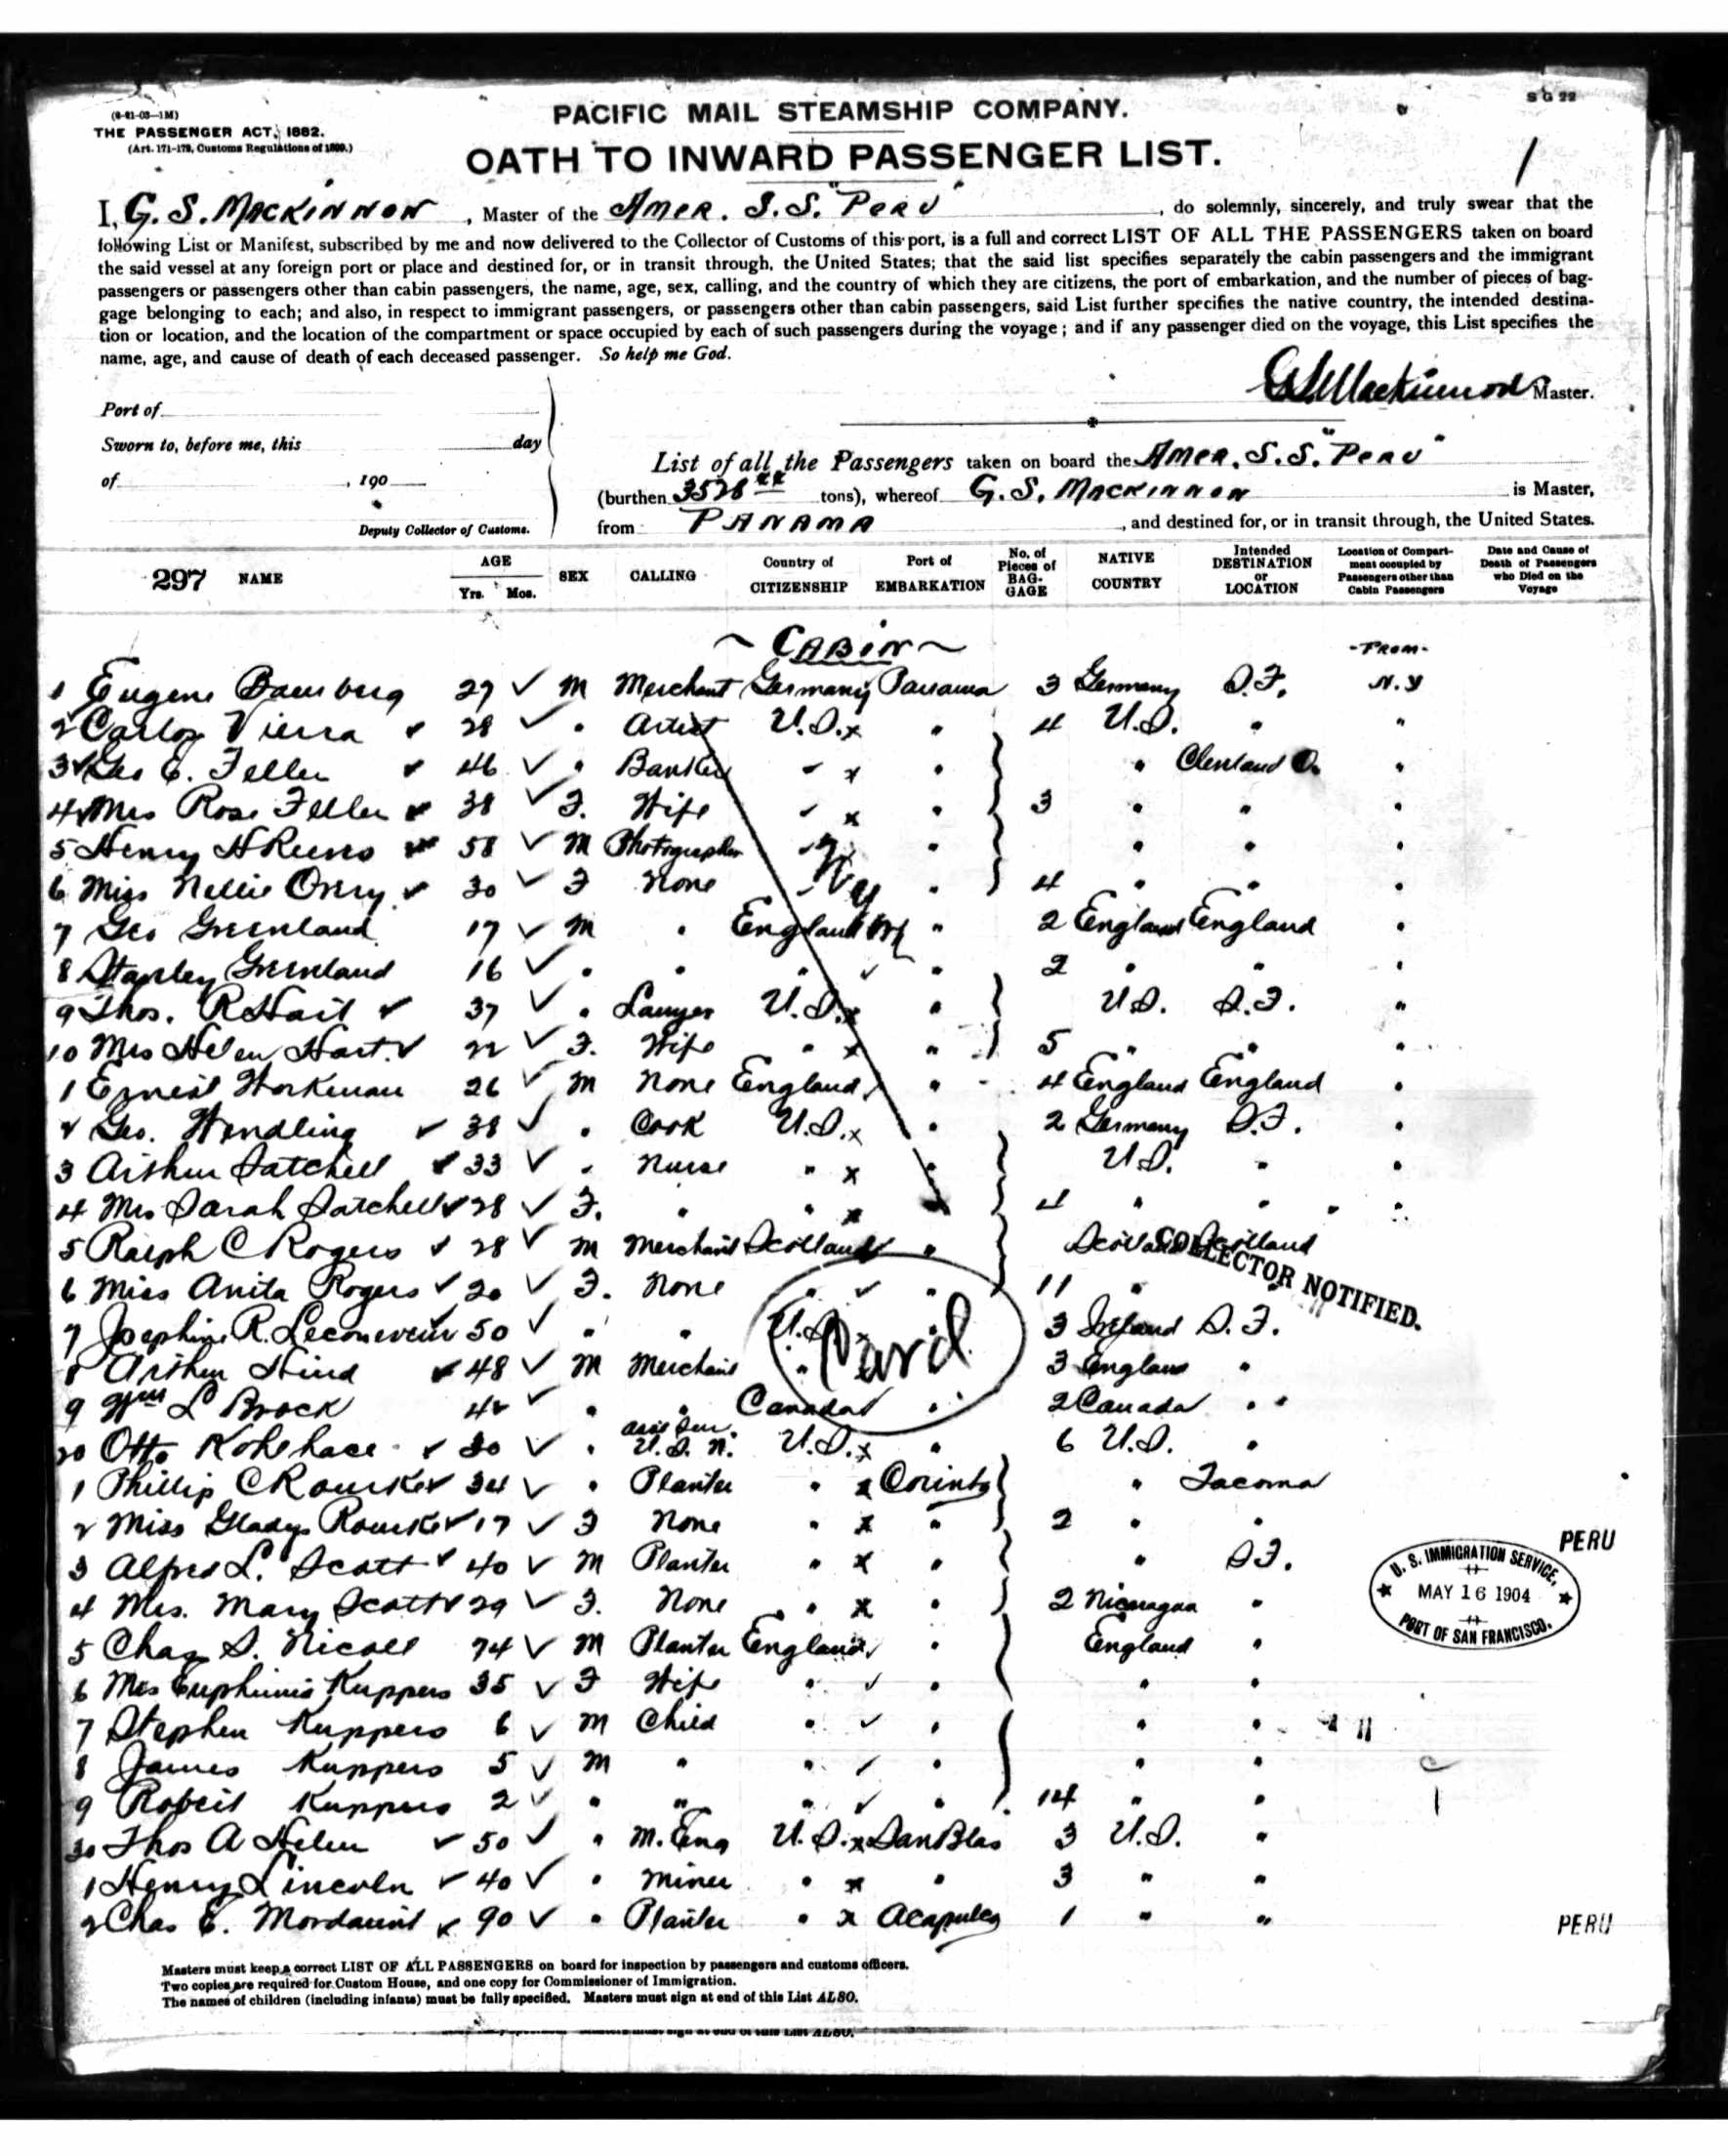 (8-21-03—1M)
THE PASSENGER ACT, 1882.
(Art. 171-179, Customs Regulations of 1899.)
S G 22
PACIFIC MAIL STEAMSHIP COMPANY.
OATH TO INWARD PASSENGER LIST.
1
I, G. S. MACKINNON, Master of the AMER. S.S. "PERU", do solemnly, sincerely, and truly swear that the
following List or Manifest, subscribed by me and now delivered to the Collector of Customs of this port, is a full and correct LIST OF ALL THE PASSENGERS taken on board
the said vessel at any foreign port or place and destined for, or in transit through, the United States; that the said list specifies separately the cabin passengers and the immigrant
passengers or passengers other than cabin passengers, the name, age, sex, calling, and the country of which they are citizens, the port of embarkation, and the number of pieces of bag-
gage belonging to each; and also, in respect to immigrant passengers, or passengers other than cabin passengers, said List further specifies the native country, the intended destina-
tion or location, and the location of the compartment or space occupied by each of such passengers during the voyage; and if any passenger died on the voyage, this List specifies the
name, age, and cause of death of each deceased passenger. So help me God.
G S Mackinnon Master.
Port of
Sworn to, before me, this day
of , 190
Deputy Collector of Customs.
List of all the Passengers taken on board the AMER. S.S. "PERU"
(burthen 3528 tons), whereof G. S. MACKINNON is Master,
from PANAMA, and destined for, or in transit through, the United States.
297 NAME AGE Yrs. Mos. SEX CALLING Country of CITIZENSHIP Port of EMBARKATION No. of Pieces of BAG-GAGE NATIVE COUNTRY Intended DESTINATION or LOCATION Location of Compart-ment occupied by Passengers other than Cabin Passengers Date and Cause of Death of Passengers who Died on the Voyage
~ CABIN ~ -FROM-
1 Eugene Bamberg 27 ✓ M Merchant Germany Panama 3 Germany S.F. N.Y
2 Carlos Vierra ✓ 28 ✓ " Artist U.S. x " 4 U.S. " "
3 ✓ Geo E. Feller ✓ 46 ✓ " Banker " x " " Cleveland O. "
4 ✓ Mrs Rose Feller ✓ 38 ✓ F. Wife " x " 3 " " "
5 Henry H 58 ✓ M Photographer " " " " "
6 Miss Nellie ✓ 30 ✓ F None " " 4 " " "
7 Geo Greenland 17 ✓ M " England " 2 England England "
8 Stanley Greenland 16 ✓ " " " ✓ " 2 " " "
9 Thos. R Hart ✓ 37 ✓ " Lawyer U.S. x " U.S. S.F. "
10 Mrs Helen Hart ✓ 22 ✓ F. Wife " x " 5 " " "
1 Ernest Workman 26 ✓ M None England " 4 England England "
2 Geo. Wendling ✓ 38 ✓ " Cook U.S. x " 2 Germany S.F. "
3 Arthur Satchell ✓ 33 ✓ " Nurse " x " U.S. " "
4 Mrs Sarah Satchell ✓ 28 ✓ F. " " x " 4 " " " "
5 Ralph C Rogers ✓ 28 ✓ M Merchant Scotland " Scotland Scotland
COLLECTOR NOTIFIED.
6 Miss Anita Rogers ✓ 20 ✓ F. None " ✓ " 11 " "
7 Josephine R. 50 ✓ " " U.S. x " 3 Ireland S.F.
8 Arthur Hind ✓ 48 ✓ M Merchant " " 3 England "
9 Wm L Brock 42 ✓ " " Canada " 2 Canada "
20 Otto ✓ 30 ✓ " U.S.N. U.S. x " 6 U.S. "
1 Phillip C Rourke ✓ 34 ✓ " Planter " x Corinto " Tacoma
2 Miss Gladys Rourke ✓ 17 ✓ F None " x " 2 " "
3 Alfred L. Scott ✓ 40 ✓ M Planter " x " " S.F.
4 Mrs. Mary Scott ✓ 29 ✓ F. None " x " 2 Nicaragua "
5 Chas S. Nicoll 74 ✓ M Planter England ✓ " England "
6 Mrs Euphemia Kuppers 35 ✓ F Wife " ✓ " " "
7 Stephen Kuppers 6 ✓ M Child " ✓ " " "
8 James Kuppers 5 ✓ M " " ✓ " " "
9 Robert Kuppers 2 ✓ " " " ✓ " 14 " "
30 Thos A Helm ✓ 50 ✓ " M. Eng U.S. x San Blas 3 U.S. "
1 Henry Lincoln ✓ 40 ✓ " Miner " x " 3 " "
2 Chas E. Mordaunt x 90 ✓ " Planter " x Acapulco 1 " "
Paid
PERU
U. S. IMMIGRATION SERVICE,
MAY 16 1904
PORT OF SAN FRANCISCO.
PERU
Masters must keep a correct LIST OF ALL PASSENGERS on board for inspection by passengers and customs officers.
Two copies are required for Custom House, and one copy for Commissioner of Immigration.
The names of children (including infants) must be fully specified. Masters must sign at end of this List ALSO.